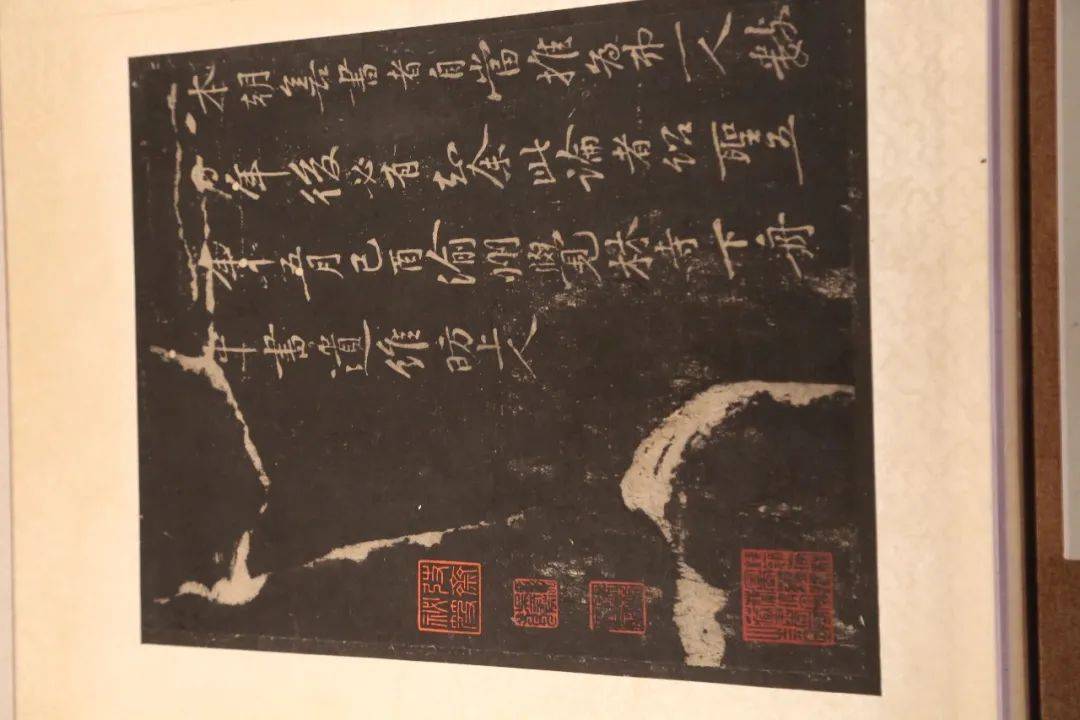 本朝善書者自當推為第一人數
百年後必有知余此論者紹聖五
年五月己酉渝州覺林寺下舟
中書遺維昉上人